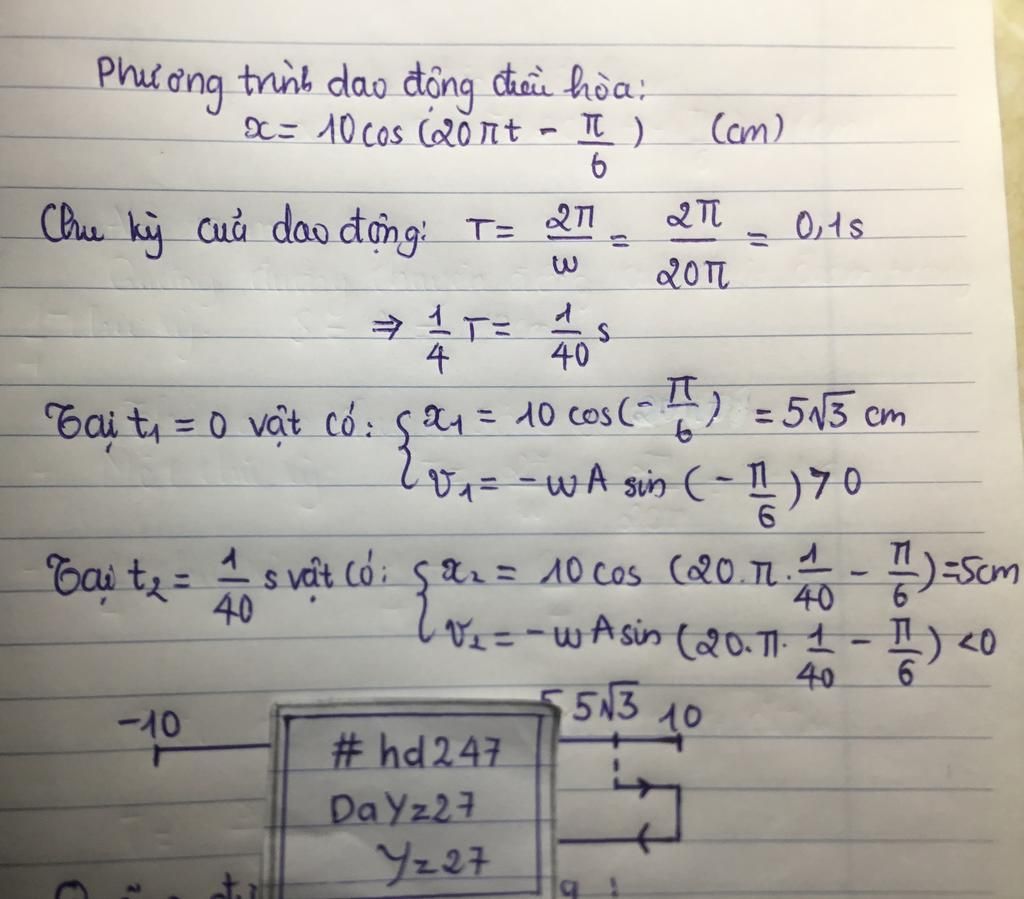 Phương trình dao động điều hòa:
x = 10 cos (20πt - π/6) (cm)
Chu kỳ của dao động: T = 2π/w = 2π/20π = 0,1s
⇒ 1/4 T = 1/40 s
Tại t₁ = 0 vật có: { x₁ = 10 cos(-π/6) = 5√3 cm
v₁ = -wA sin (-π/6) > 0
Tại t₂ = 1/40 s vật có: { x₂ = 10 cos (20.π.1/40 - π/6) = 5cm
v₂ = -wA sin (20.π.1/40 - π/6) < 0
-10 5 5√3 10
# hd247
DaYz27
Yz27